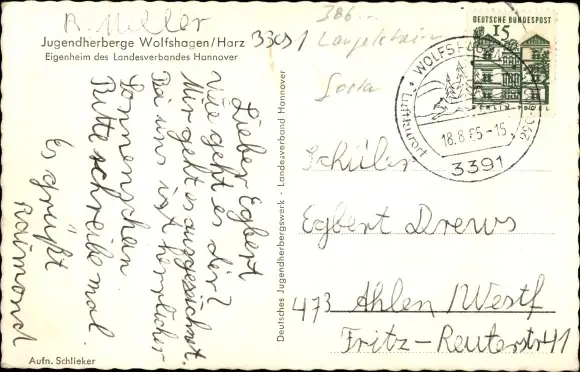 R. Müller
Jugendherberge Wolfshagen/Harz
Eigenheim des Landesverbandes Hannover
33091
386...
Langelsheim
Lieber Egbert
Wie geht es dir?
Mir geht es ausgezeichnet.
Bei uns ist herrlicher
Sonnenschein
Bitte schreibe mal.
Es grüßt
Raimond
Aufn. Schlieker
Deutsches Jugendherbergswerk - Landesverband Hannover
DEUTSCHE BUNDESPOST
15
BERLIN
WOLFSHAGEN
18.8.65-15
3391
Schüler
Egbert Drews
473 Ahlen /Westf
Fritz-Reuterstr 41